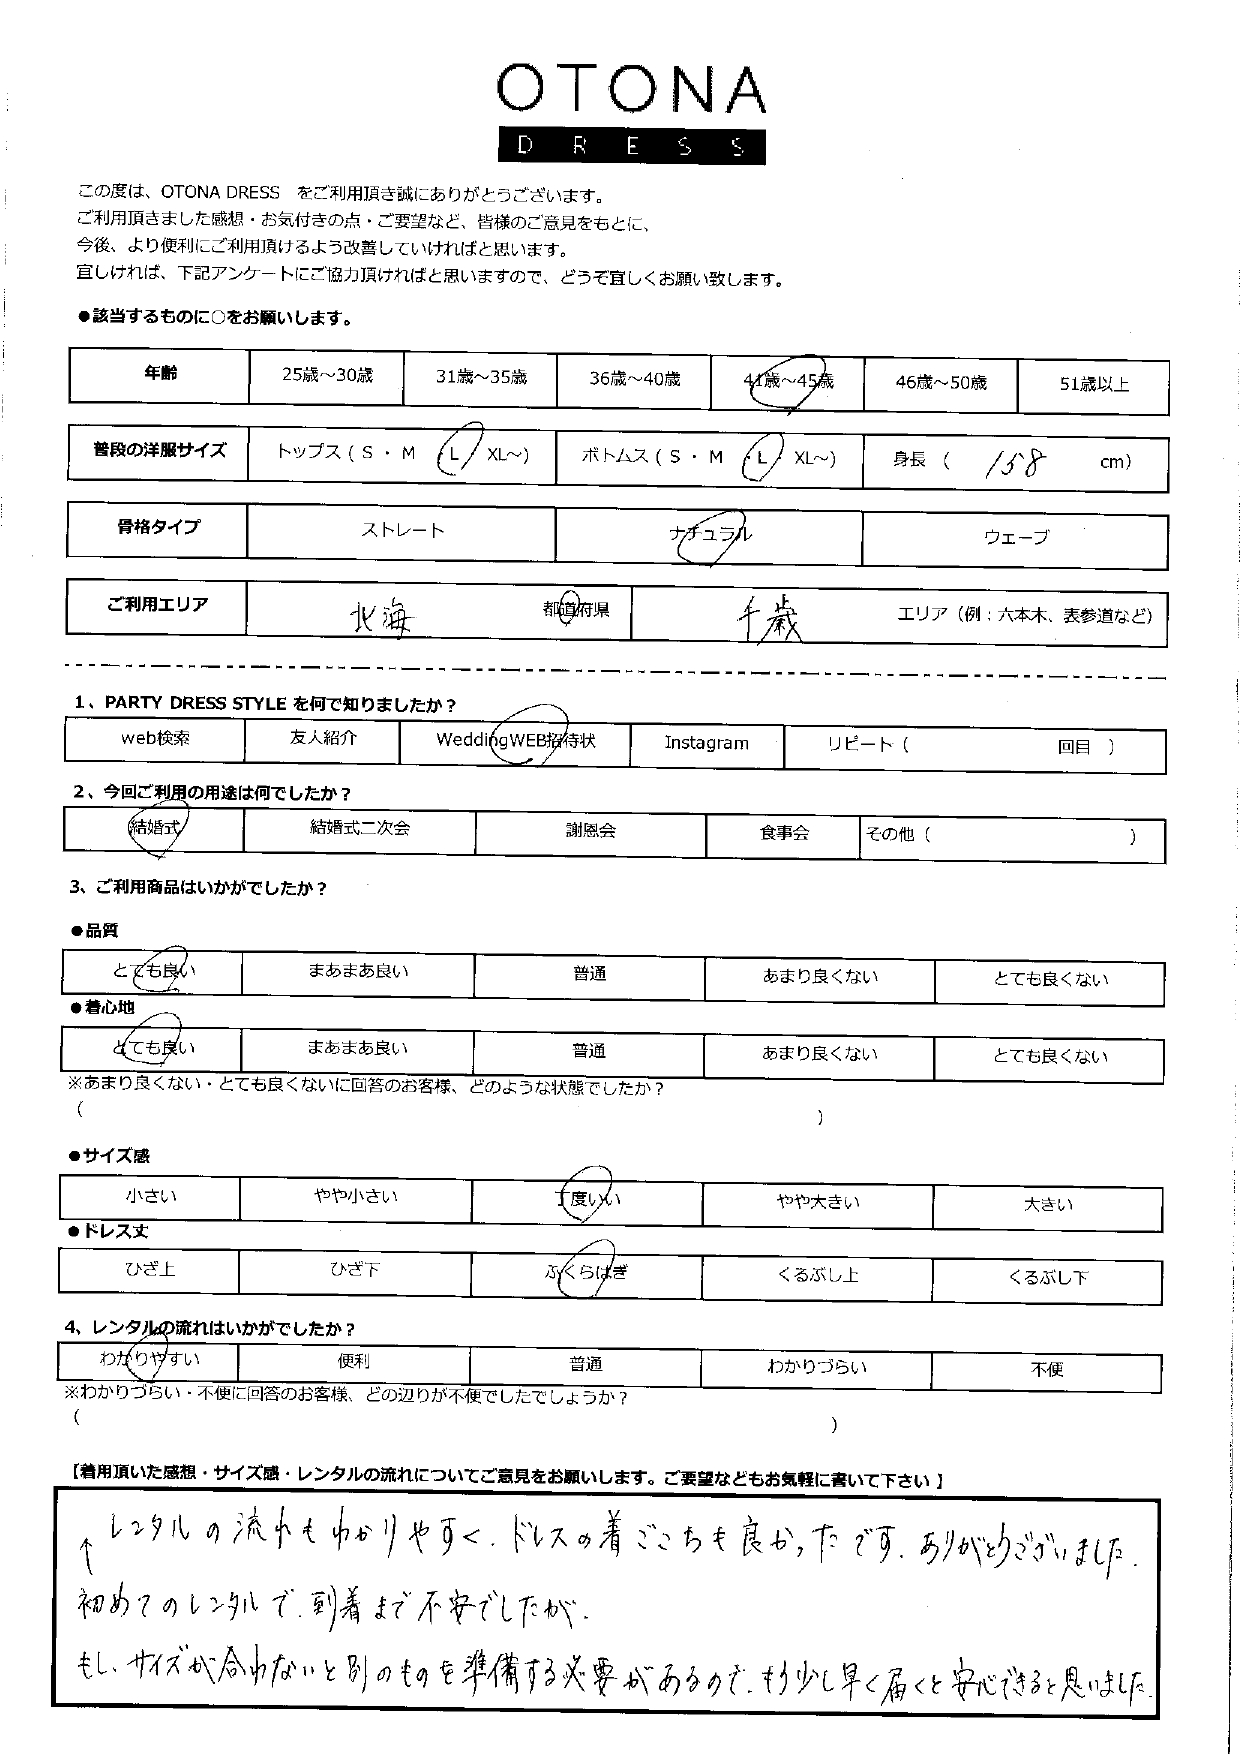 OTONA
DRESS
この度は、OTONA DRESS をご利用頂き誠にありがとうございます。
ご利用頂きました感想・お気付きの点・ご要望など、皆様のご意見をもとに、
今後、より便利にご利用頂けるよう改善していければと思います。
宜しければ、下記アンケートにご協力頂ければと思いますので、どうぞ宜しくお願い致します。
●該当するものに○をお願いします。
年齢 25歳～30歳 31歳～35歳 36歳～40歳 41歳～45歳 46歳～50歳 51歳以上
普段の洋服サイズ トップス ( S ・ M ・ L ・ XL～) ボトムス ( S ・ M ・ L ・ XL～) 身長 ( 158 cm)
骨格タイプ ストレート ナチュラル ウェーブ
ご利用エリア 北海 都道府県 千歳 エリア（例：六本木、表参道など）
1、PARTY DRESS STYLE を何で知りましたか？
web検索 友人紹介 WeddingWEB招待状 Instagram リピート ( 回目 )
2、今回ご利用の用途は何でしたか？
結婚式 結婚式二次会 謝恩会 食事会 その他 ( )
3、ご利用商品はいかがでしたか？
●品質
とても良い まあまあ良い 普通 あまり良くない とても良くない
●着心地
とても良い まあまあ良い 普通 あまり良くない とても良くない
※あまり良くない・とても良くないに回答のお客様、どのような状態でしたか？
( )
●サイズ感
小さい やや小さい 丁度いい やや大きい 大きい
●ドレス丈
ひざ上 ひざ下 ふくらはぎ くるぶし上 くるぶし下
4、レンタルの流れはいかがでしたか？
わかりやすい 便利 普通 わかりづらい 不便
※わかりづらい・不便に回答のお客様、どの辺りが不便でしたでしょうか？
( )
【着用頂いた感想・サイズ感・レンタルの流れについてご意見をお願いします。ご要望などもお気軽に書いて下さい 】
↑ レンタルの流れもわかりやすく、ドレスの着ごこちも良かったです。ありがとうございました。
初めてのレンタルで、到着まで不安でしたが、
もし、サイズが合わないと別のものを準備する必要があるので、もう少し早く届くと安心できると思いました。